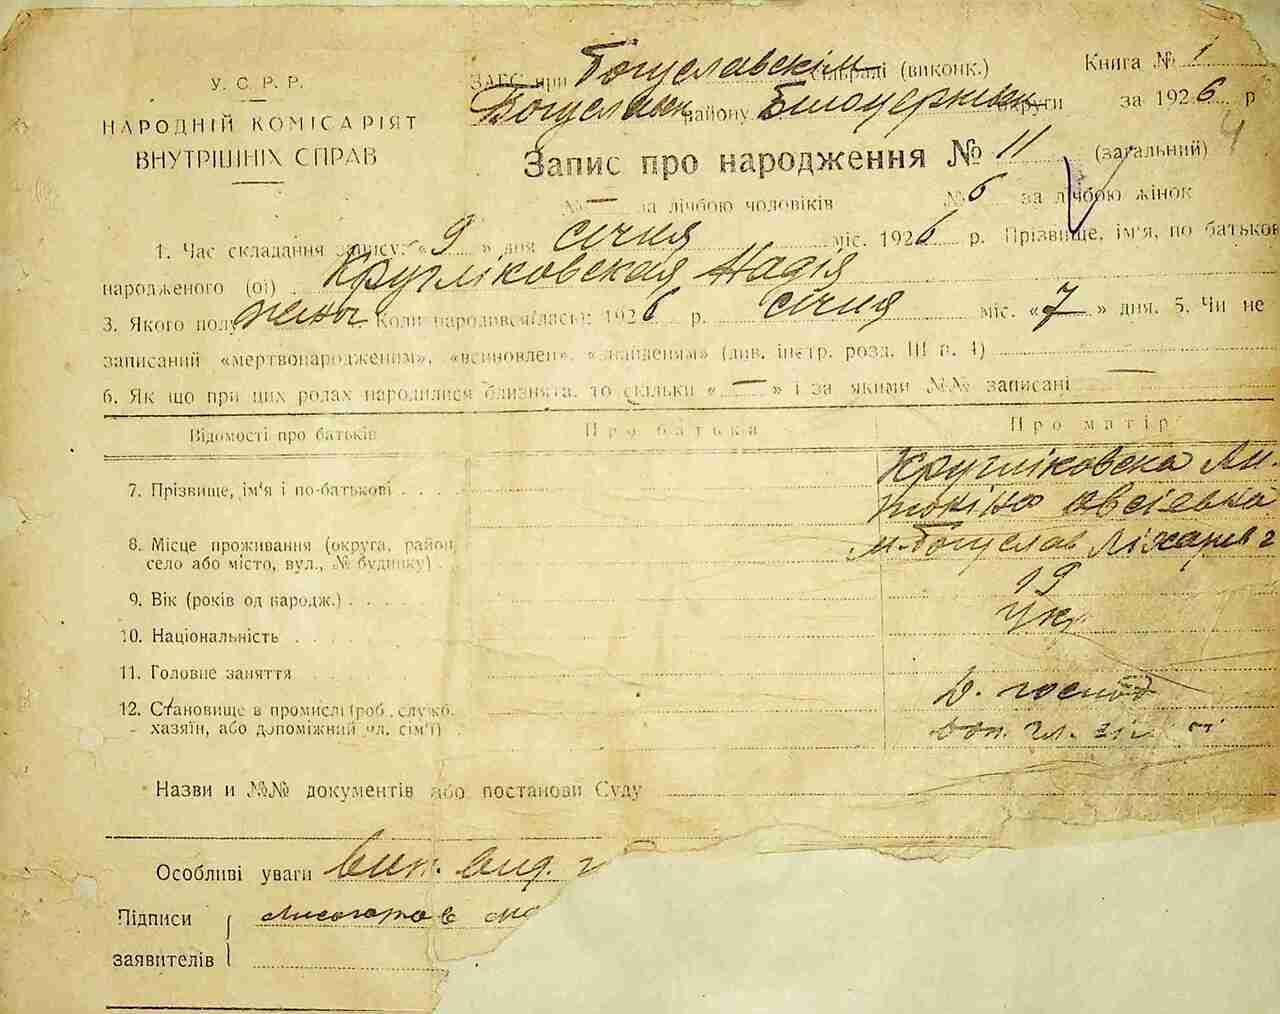 У. С. Р. Р.
НАРОДНІЙ КОМІСАРІЯТ
ВНУТРІШНІХ СПРАВ
ЗАГС при Богуславскім сільраді (виконк.) Книга № 1
Богуславск району Білоцерківськ округи за 1926 р
4
Запис про народження № 11 (загальний)
№ — за лічбою чоловіків № 6 за лічбою жінок
1. Час складання запису: «9» дня січня міс. 1926 р. Прізвище, ім'я, по батьков
народженого (ої) Кругліковская Надія
3. Якого полу жены Коли народився(лась): 1926 р. січня міс. «7» дня. 5. Чи не
записаний «мертвонародженим», «всиновлен», «знайденям» (див. інстр. розд. III п. 4)
6. Як що при цих родах народилися близнята, то скільки «—» і за якими №№ записані —
Відомості про батьків Про батька Про матір
7. Прізвище, ім'я і по-батькові Кругліковска Ан-
тоніна Авсієвна
8. Місце проживання (округа, район, м. Богуслав
село або місто, вул., № будинку)
9. Вік (років од народж.) 19
10. Національність Укр
11. Головне заняття
12. Становище в промислі (роб., служб. д. господ
хазяїн, або допоміжний чл. сім'ї) доп. чл.
Назви и №№ документів або постанови Суду
Особливі уваги вип. вид.
Підписи
заявителів